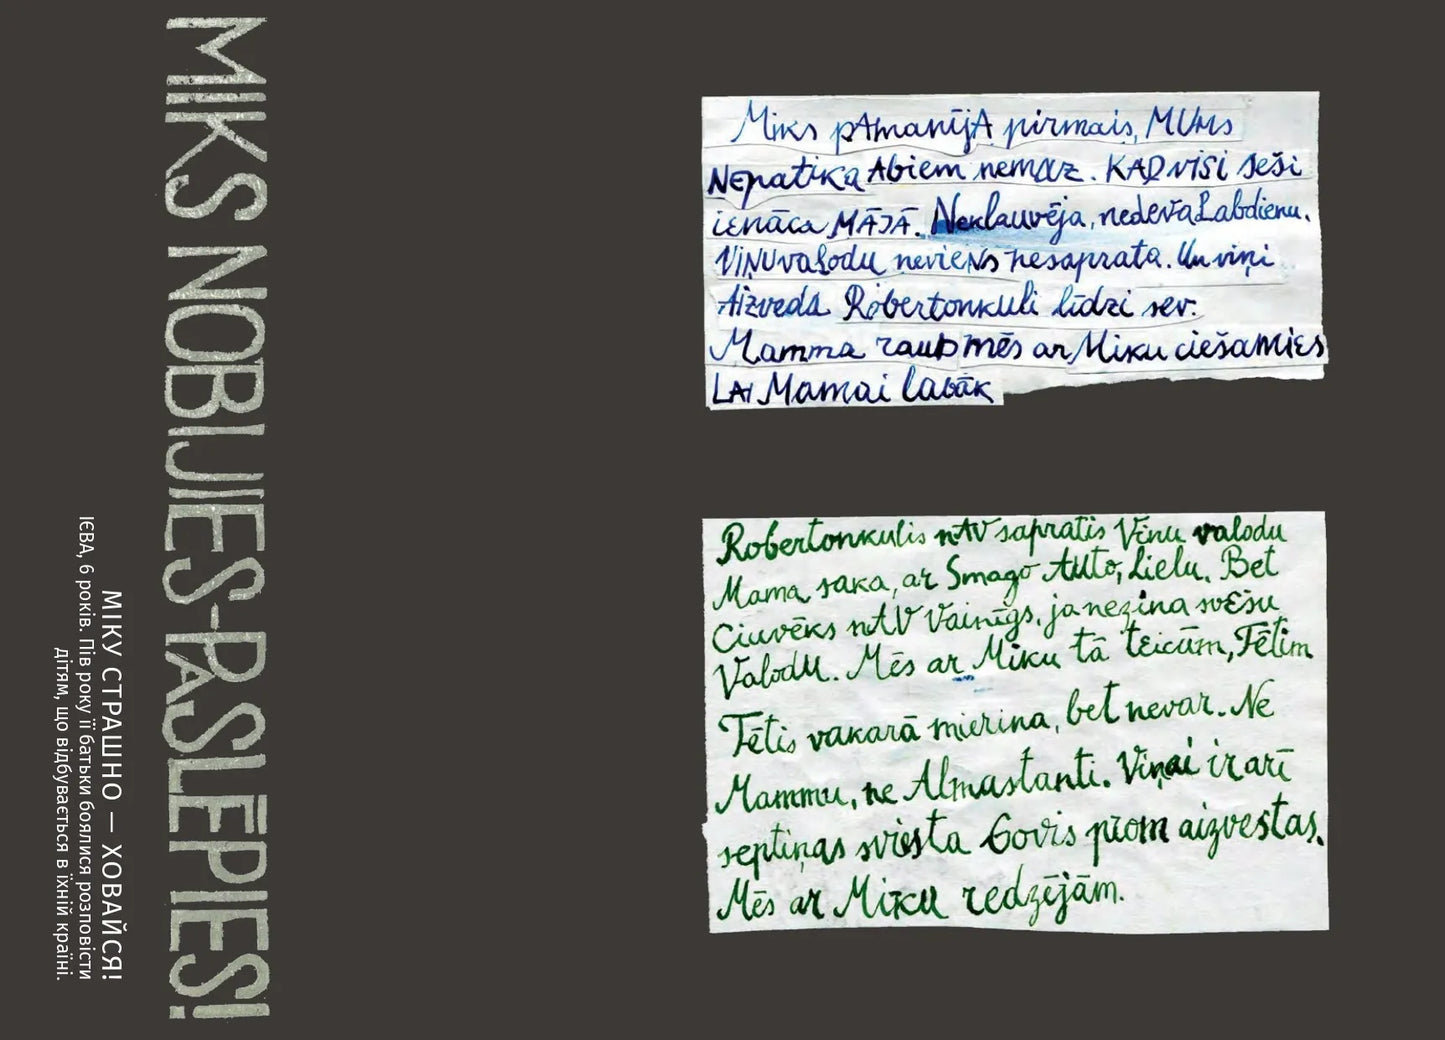 MIKS NOBIJIES-PASLĒPIES!
МІКУ СТРАШНО — ХОВАЙСЯ!
ІЄВА, 6 років. Пів року її батьки боялися розповісти
дітям, що відбувається в їхній країні.
Miks pAmanījA pirmais, MUMs
Nepatika Abiem nemaz. KAD visi seši
ienāca MĀJĀ. Neklauvēja, nedeva Labdienu.
ViņU valodu neviens nesaprata. Un viņi
Aizveda Robertonkuli līdzi sev.
Mamma raud mēs ar Miku ciešamies
LAi Mamai labāk
Robertonkulis nAV sapratis Viņu valodu
Mama saka, ar Smago AUto, Lielu. Bet
Ciuvēks nAV Vainīgs, ja nezina svešu
Valodu. Mēs ar Miku tā teicām, Tētim
Tētis vakarā mierina, bet nevar. Ne
Mammu, ne Almastanti. Viņai ir arī
septiņas sviesta Govis prom aizvestas.
Mēs ar Miku redzējām.